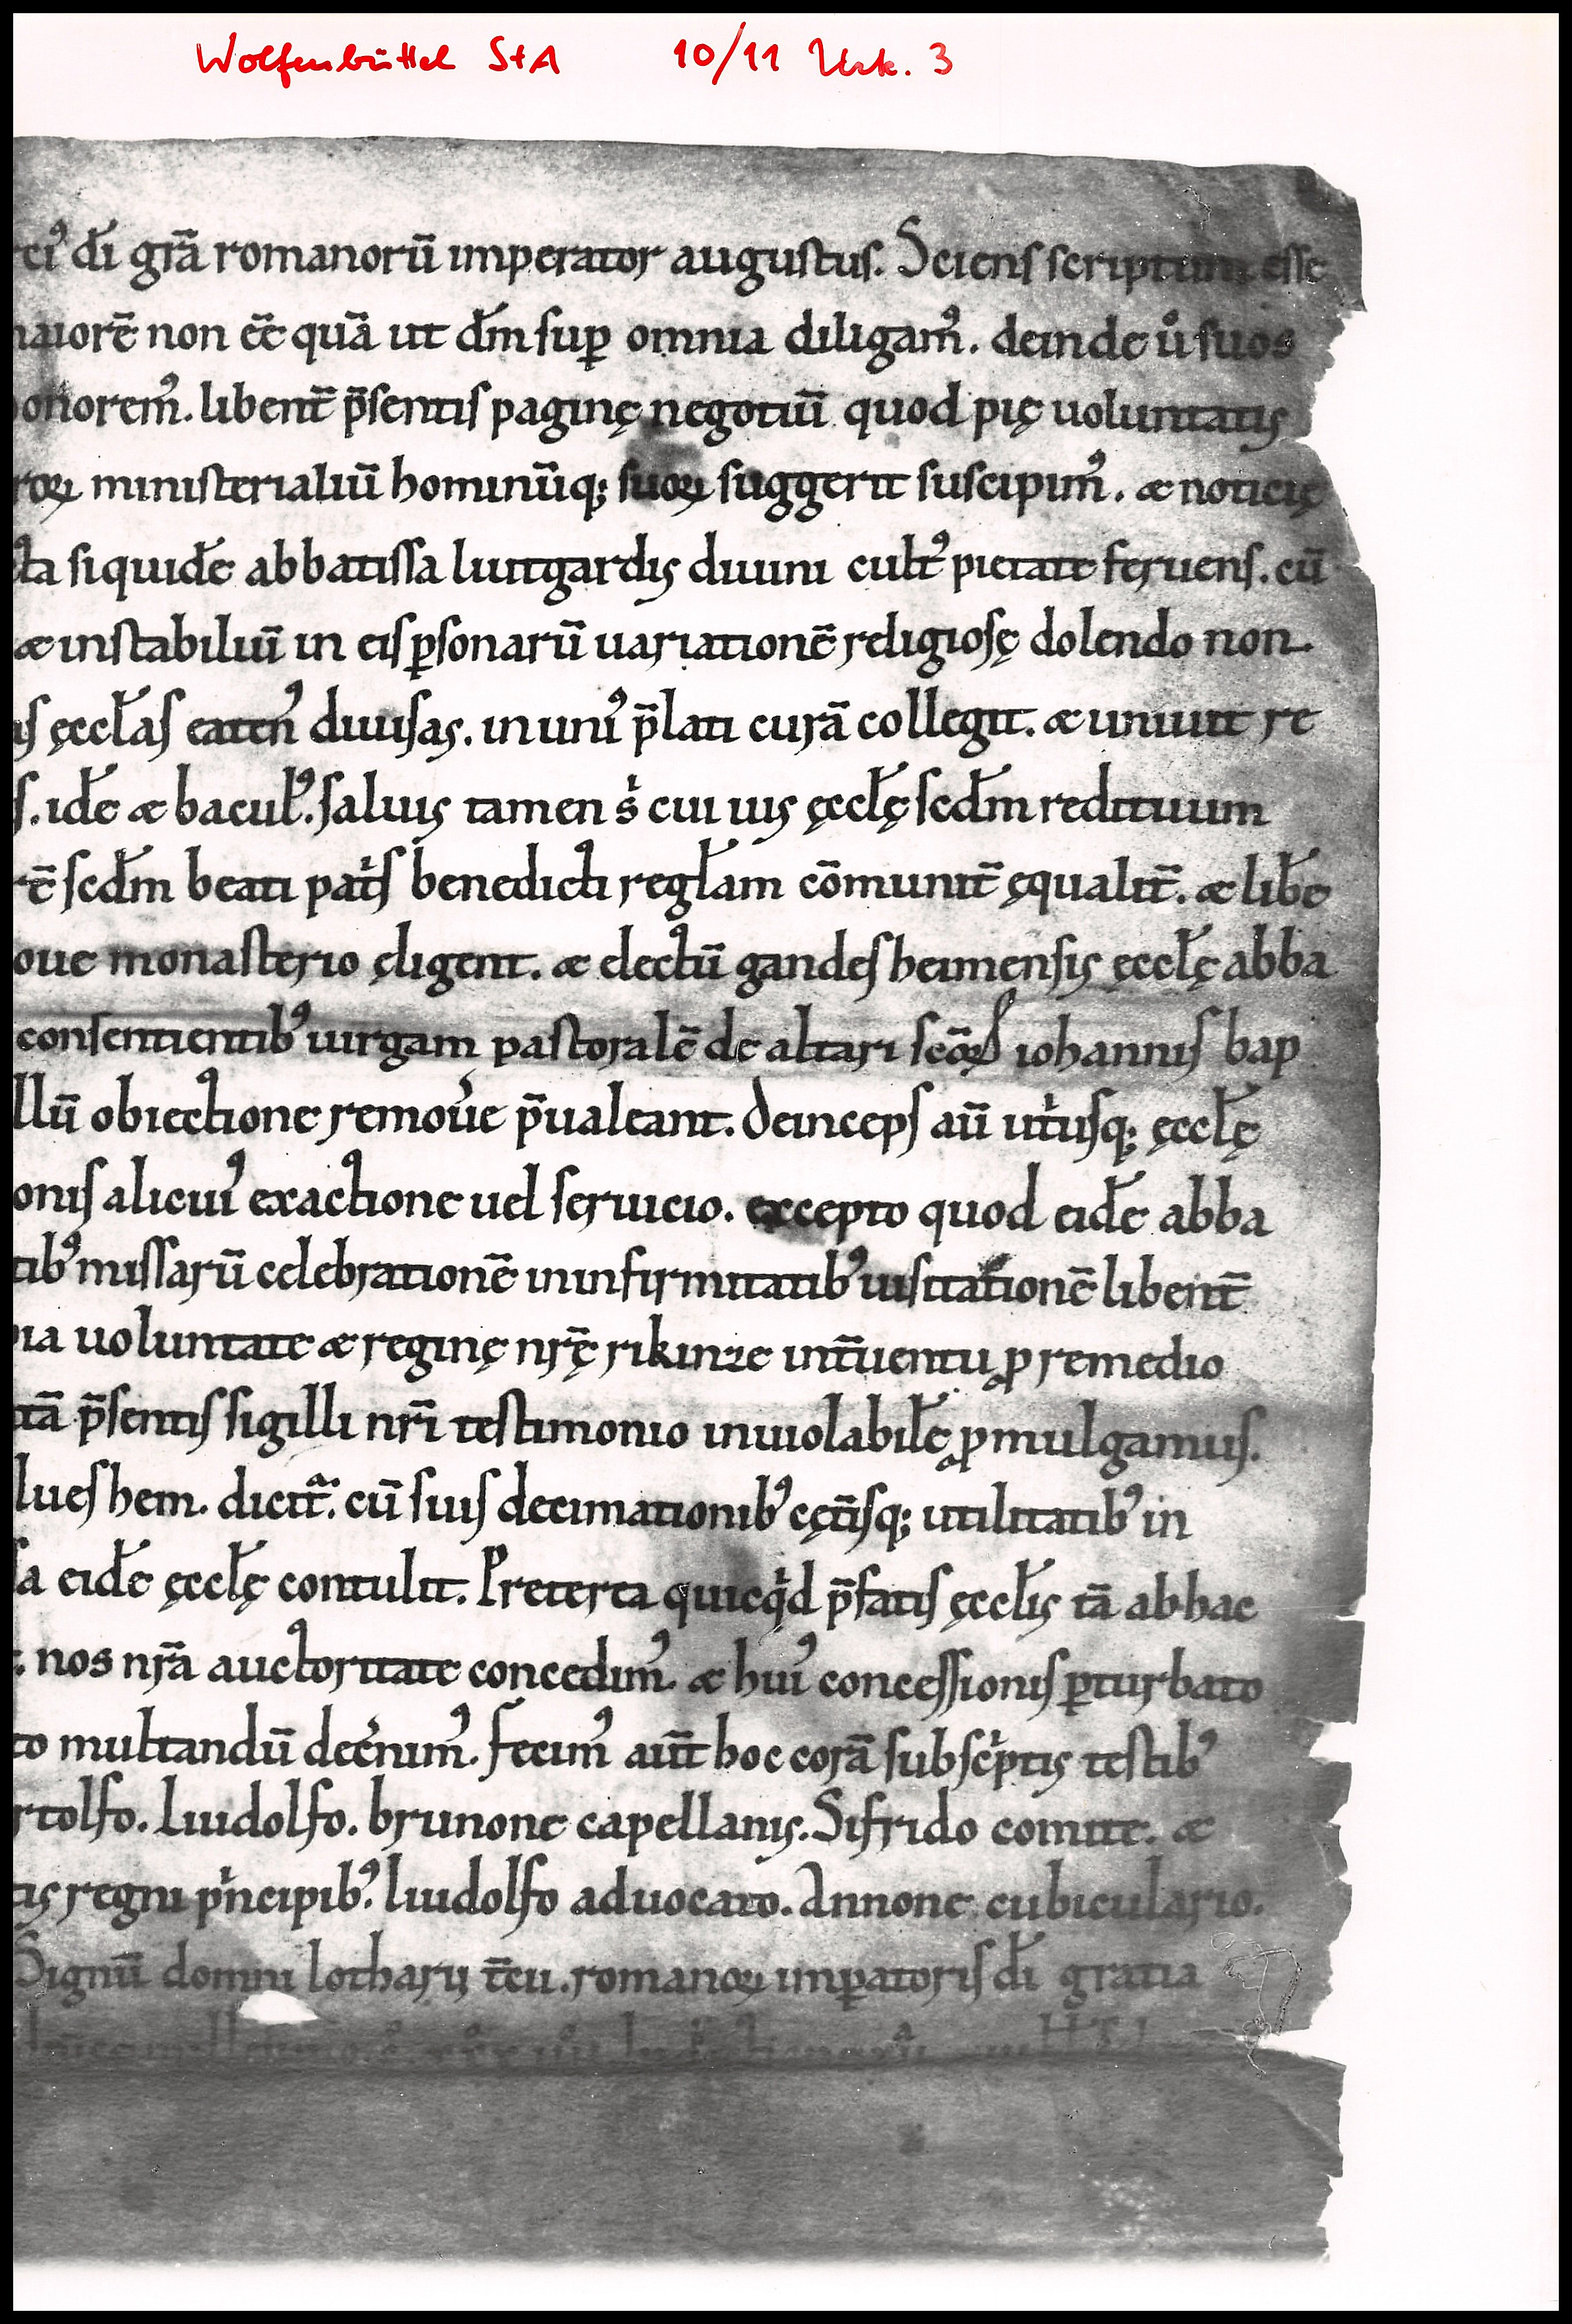 Wolfenbüttel StA 10/11 Urk. 3
rciꝰ dī gr̄a romanorū imperator augustus. Sciens scriptum esse
maiorē non eē̄ quā ut dm̄ suꝑ omnia diligamꝰ. deinde uͦ suos
onoremꝰ. libent̄ p̄sentis paginę negotiū quod pię uoluntatis
roꝝ ministerialiū hominūq; suoꝝ suggerit suscipimꝰ. & noticię
cta siquidē abbatissa liutgardis diuini cultꝰ pietate feruens. cū
& instabiliū in eis ꝑsonarū uariationē religiosę dolendo non
is ęccl̄as eatenꝰ diuisas. in uniꝰ p̄lati curā collegit. & uniuit re
s. idē & baculꝰ. saluis tamen s̍ cui uis ęccl̄ę scd̄m redituum
rē scd̄m beati pat̍s benedicti regl̄am cōmunit̄ ęqualit̄. & lib̄e
oue monasterio ęligent. & electū gandesheimensis ęccl̄ę abba
consentientibꝰ uirgam pastoralē de altari sc̄oꝝ iohannis bap
llū obiectione remou̍e p̄ualeant. Deinceps aū ut̍usq; ęccl̄ę
onis alicuiꝰ exactione uel seruicio. excepto quod eidē abba
tibꝰ missarū celebrationē in infirmitatibꝰ uisitationē libent̄
ia uoluntate & reginę nr̄ę rikinze int̄uentu ꝓ remedio
tā p̄sentis sigilli nr̄i testimonio inuiolabil̄e ꝓmulgamus.
lueshem. dicit̃. cū suis decimationibꝰ cęt̄isq; utilitatibꝰ in
sa eidē ęccl̄ę contulit. Preterea quicq̍d p̄fatis ęccl̄is tā ab hac
. nos nr̄a auctoritate concedimꝰ. & huiꝰ concessionis ꝑturbato
to multandū dec̍nimꝰ. Fecimꝰ aut̄ hoc corā subsc̍ptis testibꝰ
rtolfo. Liudolfo. brunone capellanis. Sifrido comite. &
tis regni p̍ncipibꝰ. liudolfo aduocato. Annone cubiculario.
Signū domni lotharii t̄cii. romanoꝝ imꝑatoris dī gratia